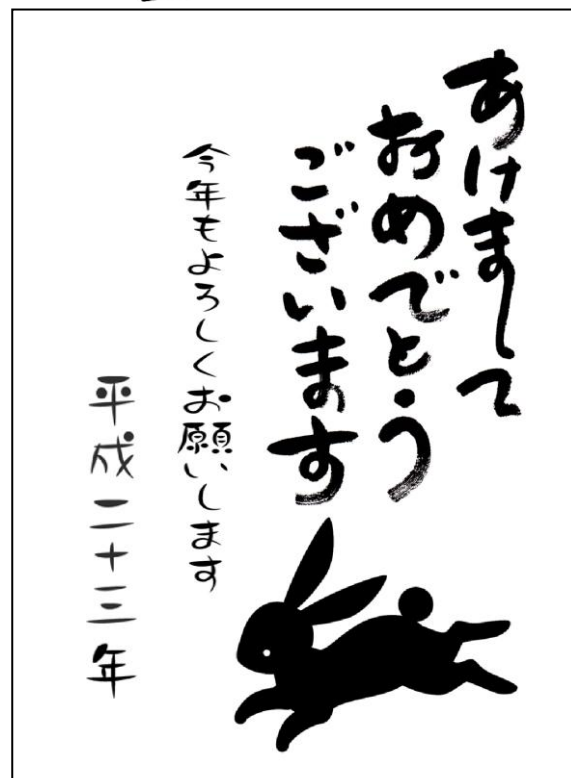 あけまして
おめでとう
ございます
今年もよろしくお願いします
平成二十三年